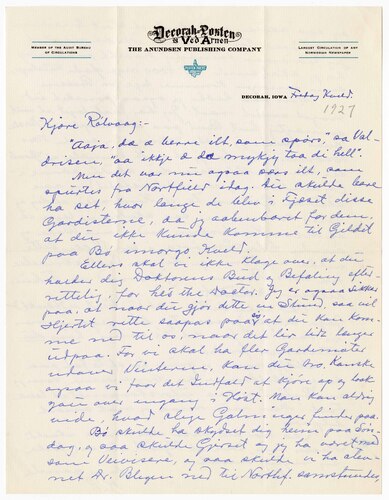 Decorah-Posten
& Ved Arnen
THE ANUNDSEN PUBLISHING COMPANY
MEMBER OF THE AUDIT BUREAU
OF CIRCULATIONS
LARGEST CIRCULATION OF ANY
NORWEGIAN NEWSPAPER
DECORAH, IOWA Fredag Kveld
1927
Kjære Rölvaag:
"Aaja, da æ berre ilt, som spörs", sa Val-
drisen, "aa ikkje æ de mykjy taa de hell".
Men det var nu ogsaa ilt, som
spurtes fra Northfield idag. Du skulde bare
ha set, hvor lange de blev i Fjeset disse
Gardisterne, da jeg aabenbaret for dem,
at du ikke kunde komme til Gildet
paa Bö imorgo Kveld.
Ellers skal vi ikke klage over, at du
holder dig Doktorens Bud og Befaling efter-
rettelig, for he's the Doctor. Jeg er ogsaa sikker
paa, at naar du gjör dette en Stund, saa vil
Hjertet rette saapas paa sig at du kan kom-
me ned til os, naar det lir lidt længer
udpaa. For vi skal ha flere Gardemöter
udover Vinteren, kan du tro. Kanske
ogsaa vi faar det Indfald at kjöre op og look
you over engang i Höst. Man kan aldrig
vide, hvad slige Galninger finder paa.
Bö skulde ha skydset dig hjem paa Sön-
dag, og saa skulde Gjerset og jeg ha været med
som Veivisere, og saa skulde vi ha
Dr. Blegen ned til Northf. samstundes,